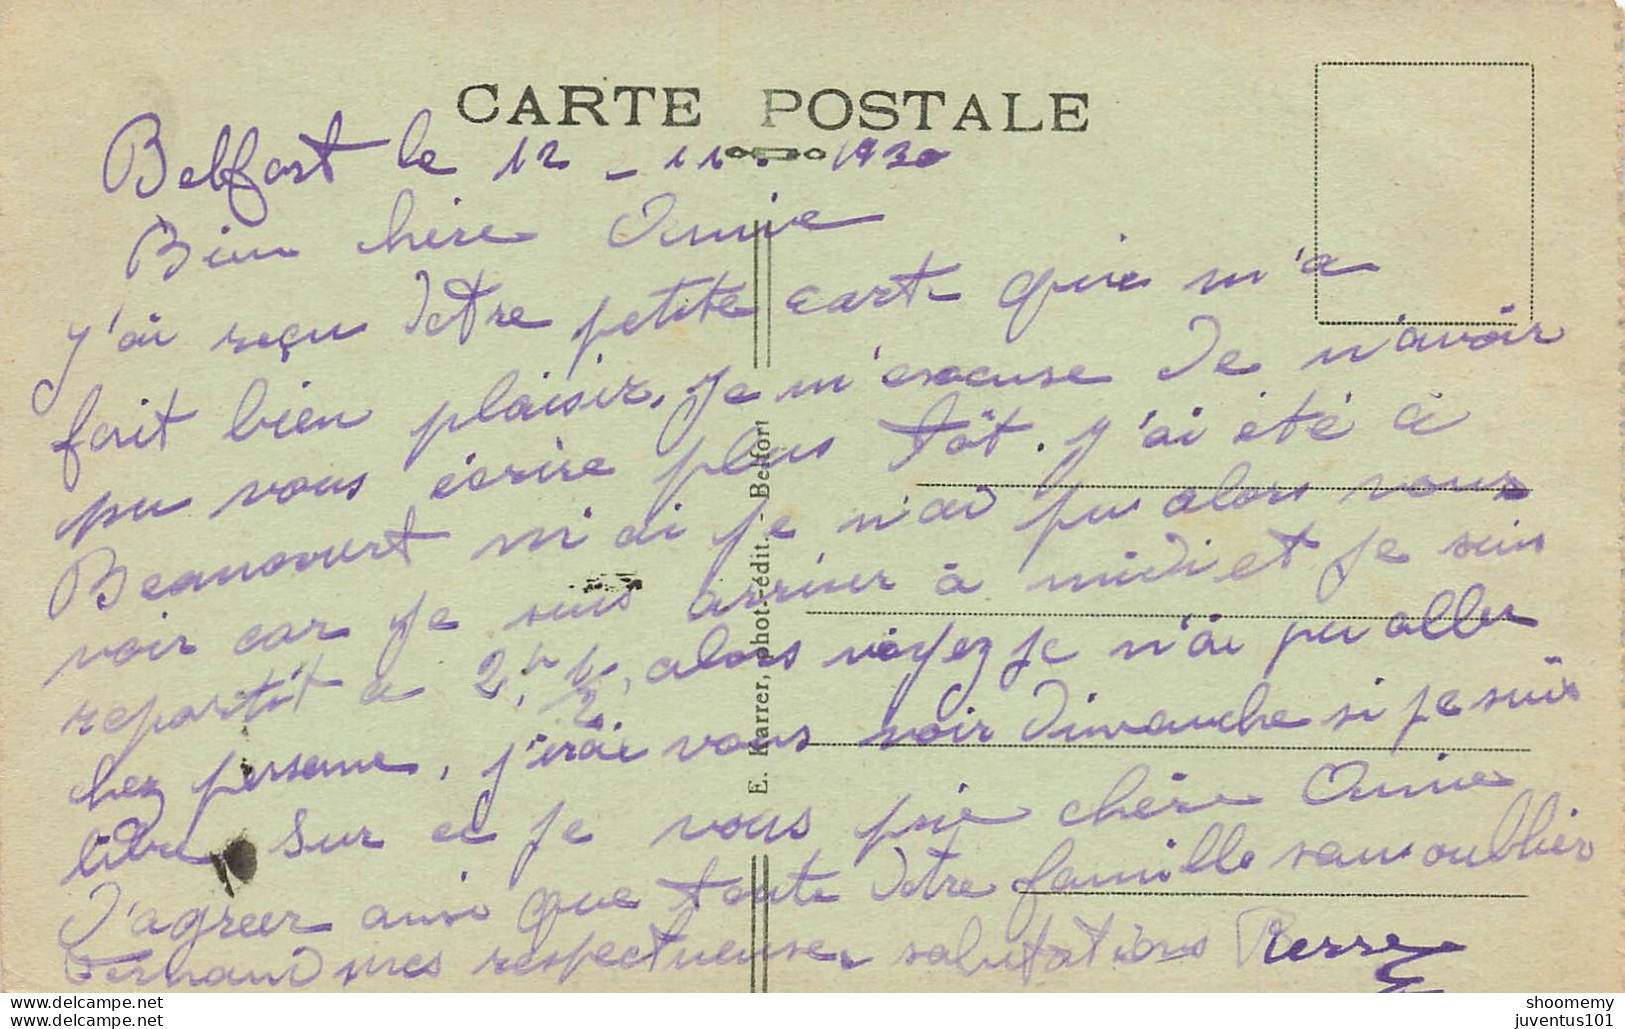 CARTE POSTALE
Belfort le 12 - 11 - 1930
Bien chère Amie
J'ai reçu votre petite carte qui m'a
fait bien plaisir. Je m'excuse de n'avoir
pu vous écrire plus tôt. J'ai été à
Beaucourt m'ai je n'ai pu alors vous
voir car je suis arriver à midi et je suis
repartit a 2h 1/2, alors voyez je n'ai pu aller
chez persone, j'irai vous voir dimanche si je suis
libre Sur ce je vous prie chère Amie
d'agréer ainsi que toute votre famille sans oublier
Fernand mes respectueuses salutations Pierre
E. Karrer, phot.-édit. - Belfort
Belfort.net
Belfort.net
shoomemy
juventus101